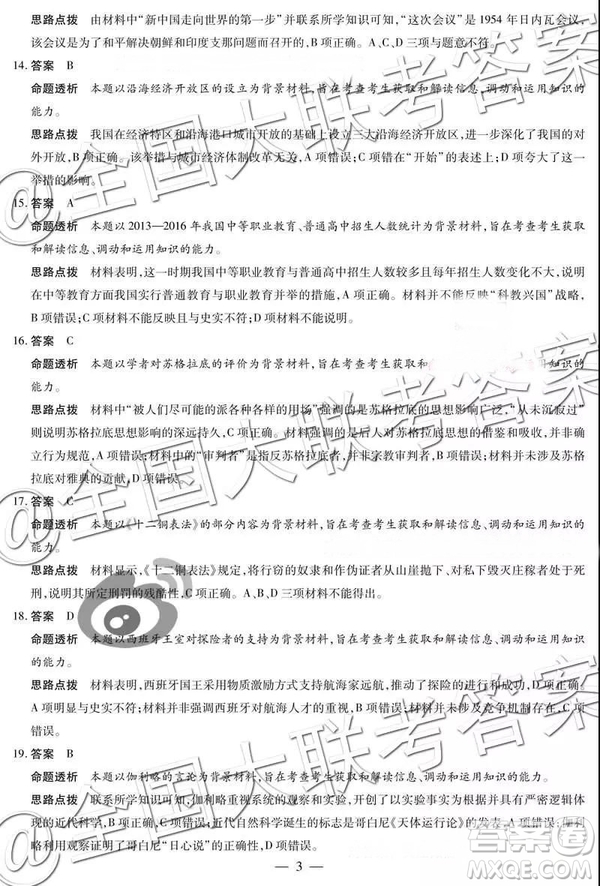 思路点拨　由材料中“新中国走向世界的第一步”并联系所学知识可知，“这次会议”是 1954 年日内瓦会议，
该会议是为了和平解决朝鲜和印度支那问题而召开的，B 项正确。A、C、D 三项与题意不符。
14. 答案　B
命题透析　本题以沿海经济开放区的设立为背景材料，旨在考查考生获取和解读信息、调动和运用知识的
能力。
思路点拨　我国在经济特区和沿海港口城市开放的基础上设立三大沿海经济开放区，进一步深化了我国的对
外开放，B 项正确。该举措与城市经济体制改革无关，A 项错误；C 项错在“开始”的表述上；D 项夸大了这一
举措的影响。
15. 答案　A
命题透析　本题以 2013—2016 年我国中等职业教育、普通高中招生人数统计为背景材料，旨在考查考生获取
和解读信息、调动和运用知识的能力。
思路点拨　材料表明，这一时期我国中等职业教育与普通高中招生人数较多且每年招生人数变化不大，说明
在中等教育方面我国实行普通教育与职业教育并举的措施，A 项正确。材料不能反映“科教兴国”战略，
B 项错误；C 项材料不能反映且与史实不符；D 项错误。
16. 答案　C
命题透析　本题以学者对苏格拉底的评价为背景材料，旨在考查考生获取和知识的
能力。
思路点拨　材料中“被人们尽可能的派各种各样的用场”强调的是苏格拉底的思想影响广泛，“从未沉寂过”
则说明苏格拉底思想影响的深远持久，C 项正确。材料强调的是后人对苏格拉底思想的研究和应用，并非确立
行为规范，A 项错误；材料中的“审判者”是指苏格拉底，并非宗教审判者，B 项错误；材料并未涉及苏格
拉底对雅典的贡献，D 项错误。
17. 答案　C
命题透析　本题以《十二铜表法》的部分内容为背景材料，旨在考查考生获取和解读信息、调动和运用知识的
能力。
思路点拨　材料显示，《十二铜表法》规定，将行窃的奴隶和作伪证者从山崖抛下、对毁灭庄稼者处以死
刑，说明其所定刑罚的残酷性，C 项正确。A、B、D 三项材料不能体现。
18. 答案　D
命题透析　本题以西班牙王室对探险者的支持为背景材料，旨在考查考生获取和解读信息、调动和运用知识
的能力。
思路点拨　材料表明，西班牙国王采用物质激励方式支持航海家远航，推动了探险的进行和成功，D 项正确。
A 项明显与史实不符；材料并非强调西班牙对航海人才的重视，B 项错误；材料并未涉及竞争机制的存在，C 项
错误。
19. 答案　B
命题透析　本题以伽利略的言论为背景材料，旨在考查考生获取和解读信息、调动和运用知识的能力。
思路点拨　联系所学知识可知，伽利略重视系统的观察和实验，开创了以实验事实为根据并具有严密逻辑体
现的近代科学，B 项正确；近代自然科学诞生的标志是哥白尼《天体运行论》的发表，A 项错误；伽利
略利用观察证明了哥白尼“日心说”的正确性，C 项错误；D 项错误。
— 3 —
@全国大联考答案